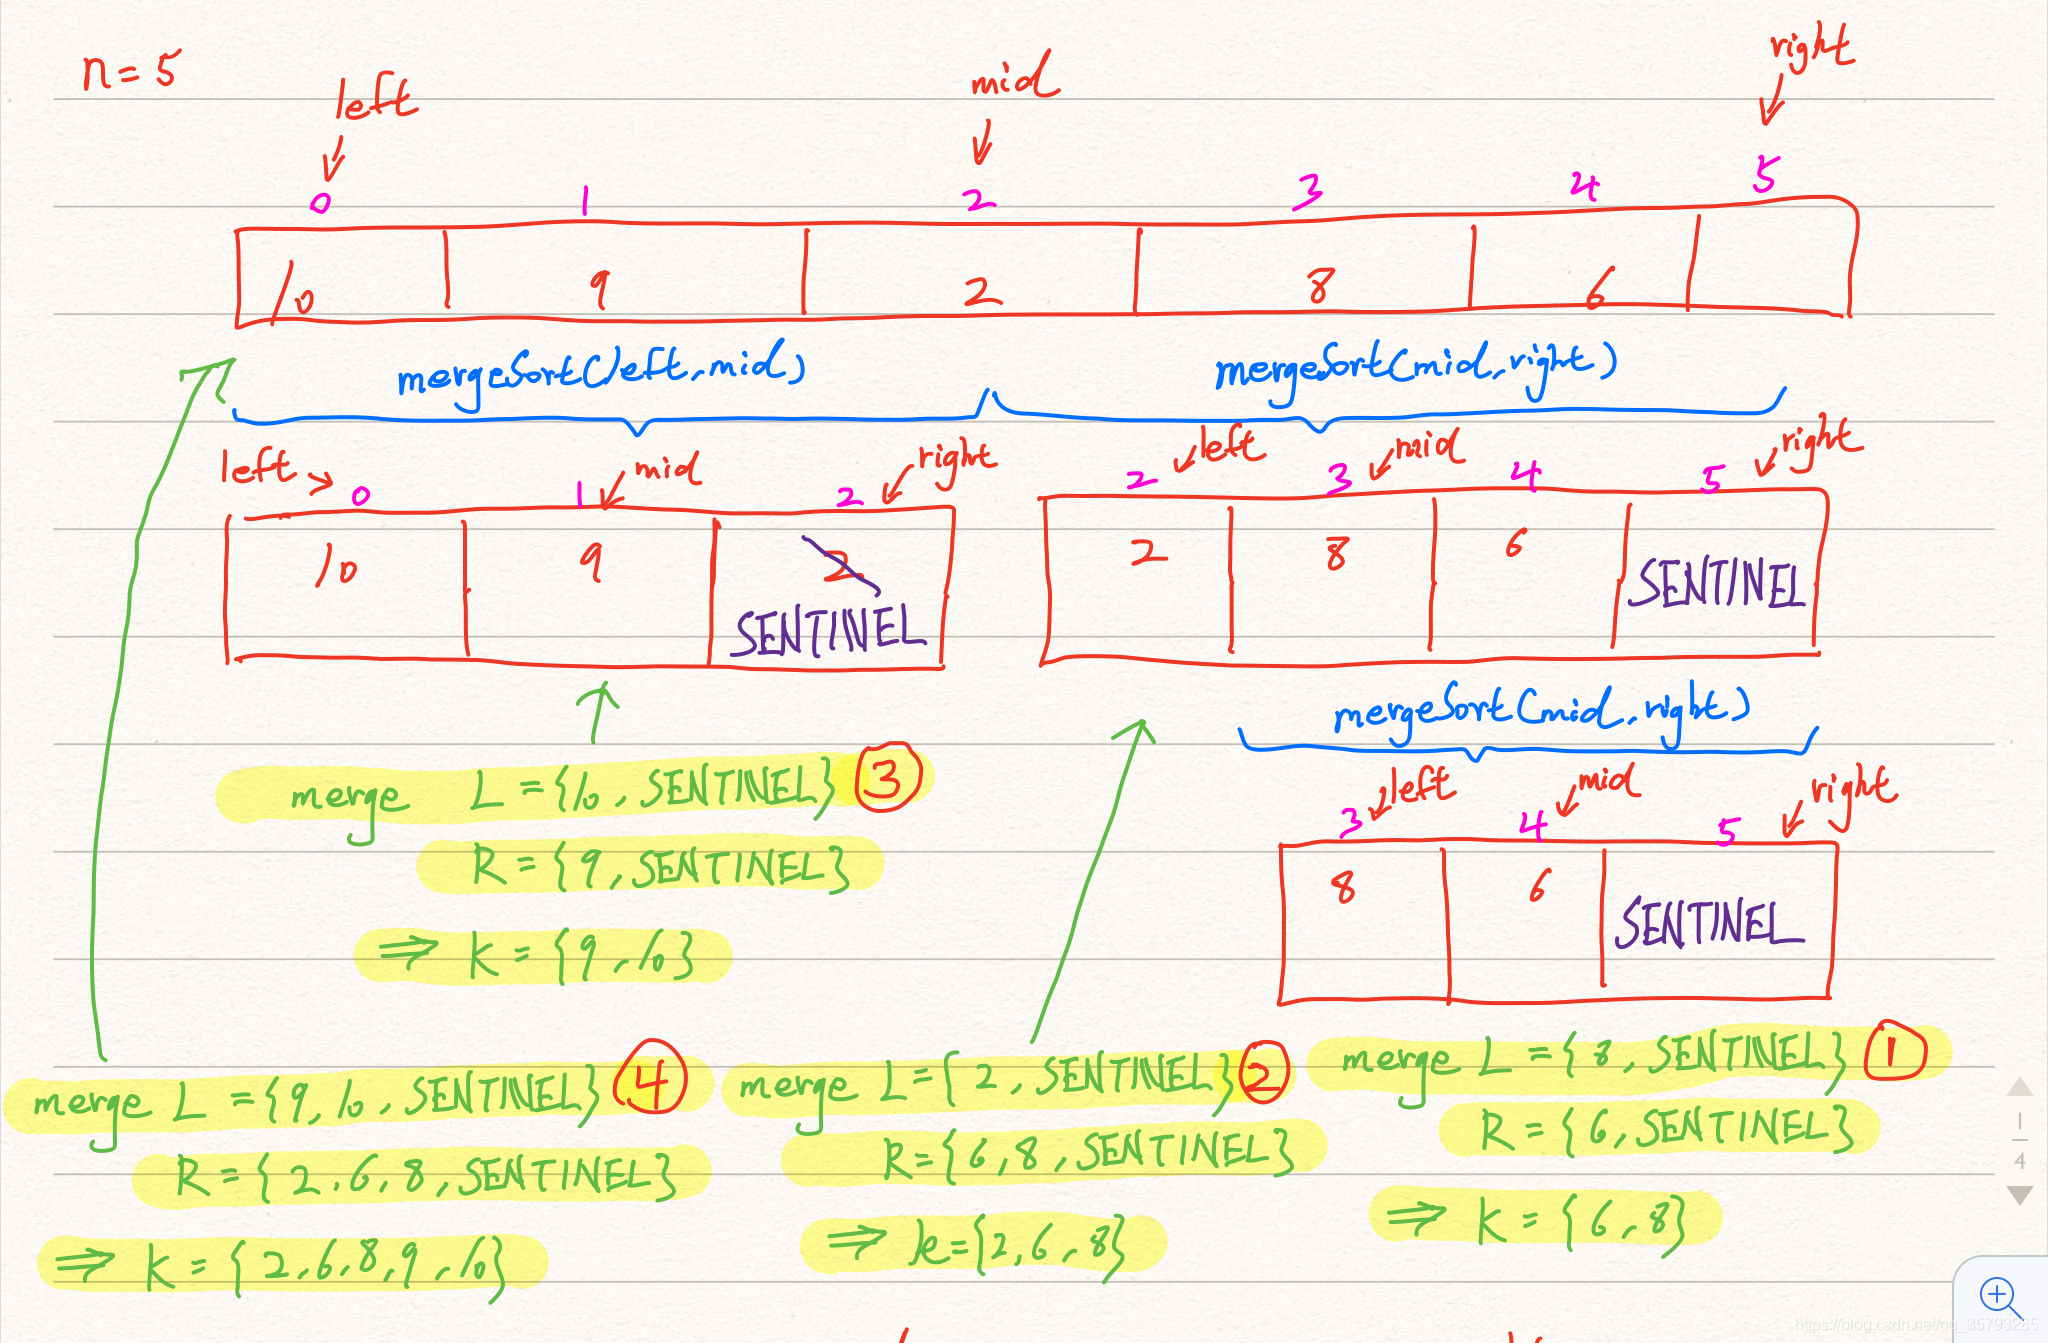 n=5
left mid right
0 1 2 3 4 5
10 9 2 8 6
mergeSort(left,mid) mergeSort(mid,right)
left mid right left mid right
0 1 2 2 3 4 5
10 9 2 2 8 6 SENTINEL
SENTINEL
mergeSort(mid,right)
merge L={10,SENTINEL} 3
left mid right
3 4 5
R={9,SENTINEL}
8 6 SENTINEL
⇒ K={9,10}
merge L={8,SENTINEL} 1
R={6,SENTINEL}
⇒ K={6,8}
merge L={2,SENTINEL} 2
R={6,8,SENTINEL}
⇒ k={2,6,8}
merge L={9,10,SENTINEL} 4
R={2,6,8,SENTINEL}
⇒ K={2,6,8,9,10}
1
4
https://blog.csdn.net/qq_35793285